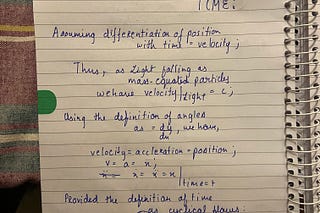 TIME:
Assuming differentiation of position
with time = velocity;
Thus, as Light falling as
mass-equated particles
we have velocity|Light = c;
Using the definition of angles
as = dy/dx, we have,
velocity = accleration = position;
v = a = x;
ẋ = ẍ = x|time=t
Provided the definition of time
as cyclical flows: